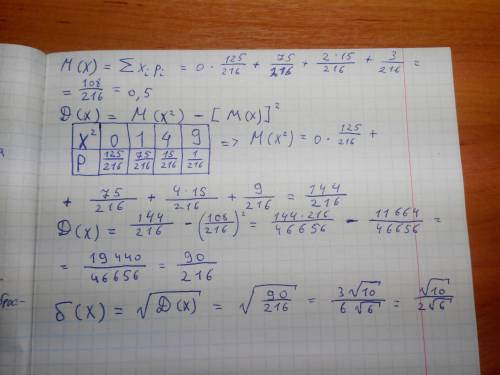 M(X) = ∑ xᵢ pᵢ = 0 · 125/216 + 75/216 + 2·15/216 + 3/216 =
= 108/216 = 0,5
D(X) = M(X²) - [M(X)]²
X² 0 1 4 9
P 125/216 75/216 15/216 1/216
=> M(X²) = 0 · 125/216 +
+ 75/216 + 4·15/216 + 9/216 = 144/216
D(X) = 144/216 - (108/216)² = 144·216/46656 - 11664/46656 =
= 19440/46656 = 90/216
δ(X) = √D(X) = √(90/216) = 3√10/6√6 = √10/2√6